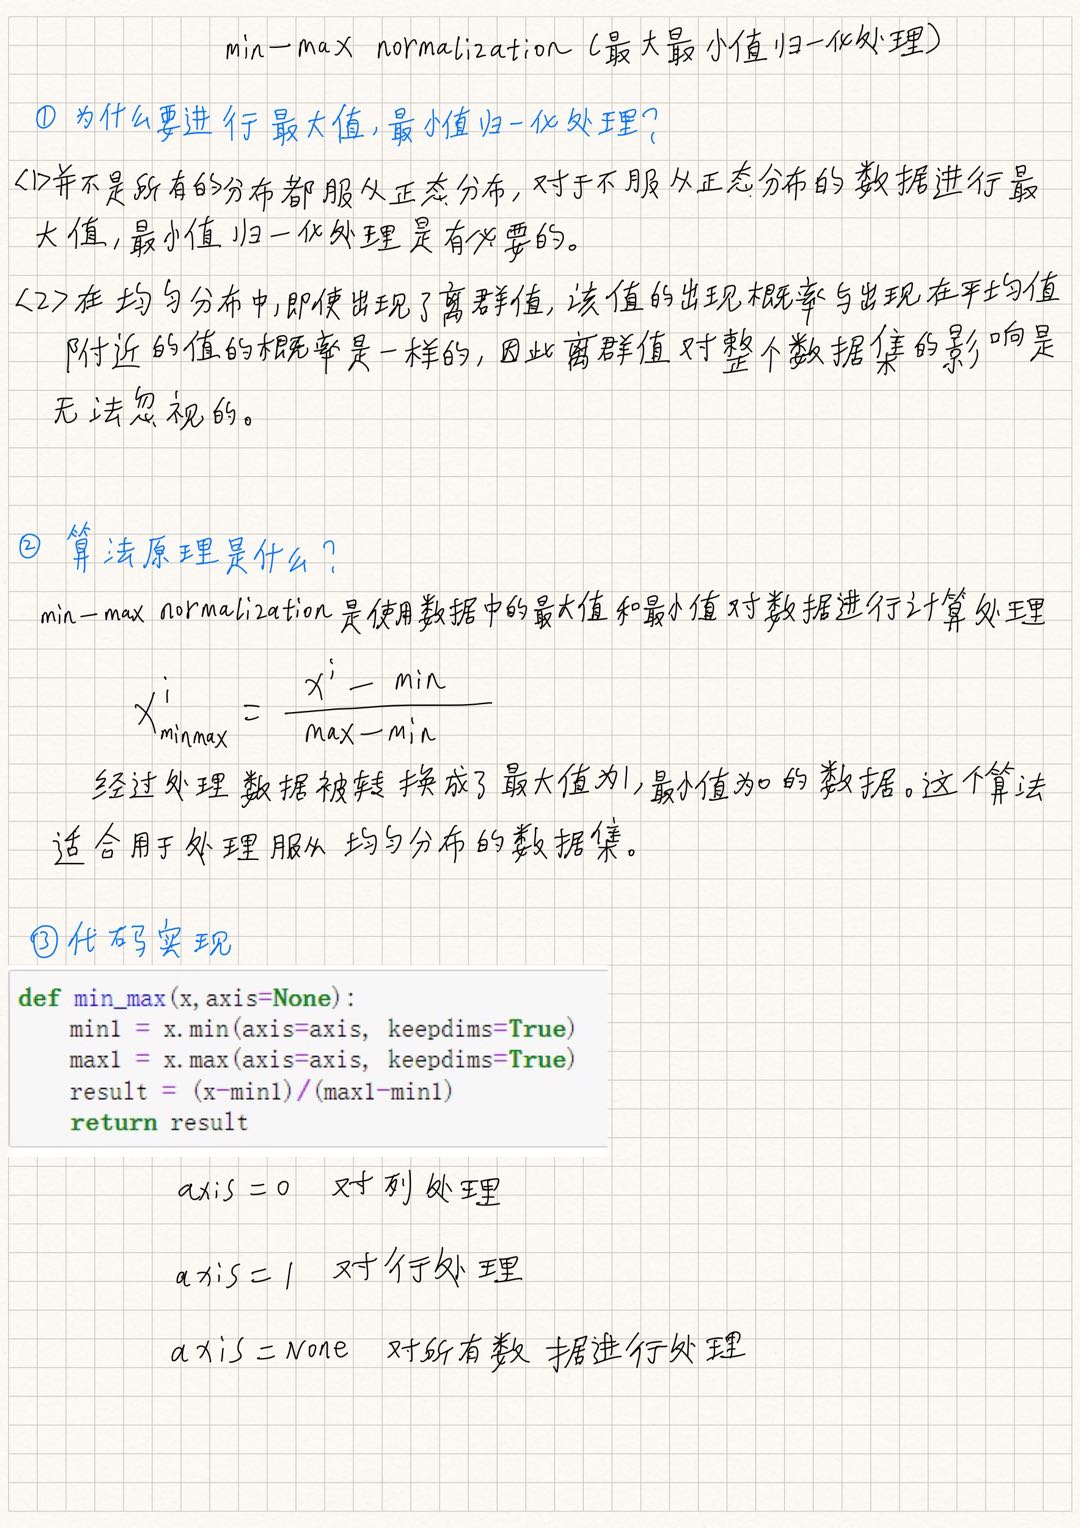 min-max normalization (最大最小值归一化处理)
① 为什么要进行最大值,最小值归一化处理?
<1>并不是所有的分布都服从正态分布,对于不服从正态分布的数据进行最
大值,最小值归一化处理是有必要的。
<2>在均匀分布中,即使出现了离群值,该值的出现概率与出现在平均值
附近的值的概率是一样的,因此离群值对整个数据集的影响是
无法忽视的。
② 算法原理是什么?
min-max normalization是使用数据中的最大值和最小值对数据进行计算处理
x^i_minmax = (x^i - min) / (max - min)
经过处理数据被转换成了最大值为1,最小值为0的数据。这个算法
适合用于处理服从均匀分布的数据集。
③代码实现
def min_max(x,axis=None):
    min1 = x.min(axis=axis, keepdims=True)
    max1 = x.max(axis=axis, keepdims=True)
    result = (x-min1)/(max1-min1)
    return result
axis=0 对列处理
axis=1 对行处理
axis=None 对所有数据进行处理